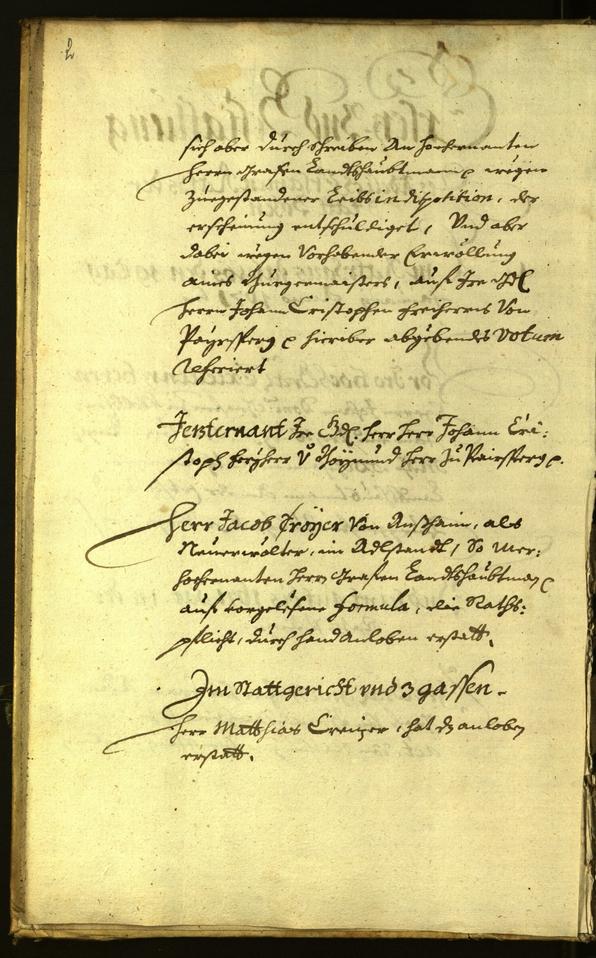 2
sich aber durch schreiben An hochernanten
herrn Grafen Landtshaubtmann wegen
Zuegestandener Leibs indisposition, der
erscheinung entschuldiget, Vnd aber
dabei wegen Vorhabender Erwöllung
aines Burgermaisters, auf Ire Gd.
herrn Johann Cristophen Freiherrns Von
hieriber abgebendes Votum
referiert
Ire Gd. herr herr Johann Cri:
stoph freyherr herr Zu
herr Jacob Troyer Von Aufhaim, als
Neuerwölter, im Adlstandt, So wol:
hochernanten herrn Grafen Landtshaubtman
auf vorgelesene formula, die Raths:
pflicht, durch handAnloben erstatt.
Im Stattgericht vnd 3 gassen.
herr Matthias Creizer, hat dz anloben
erstatt.